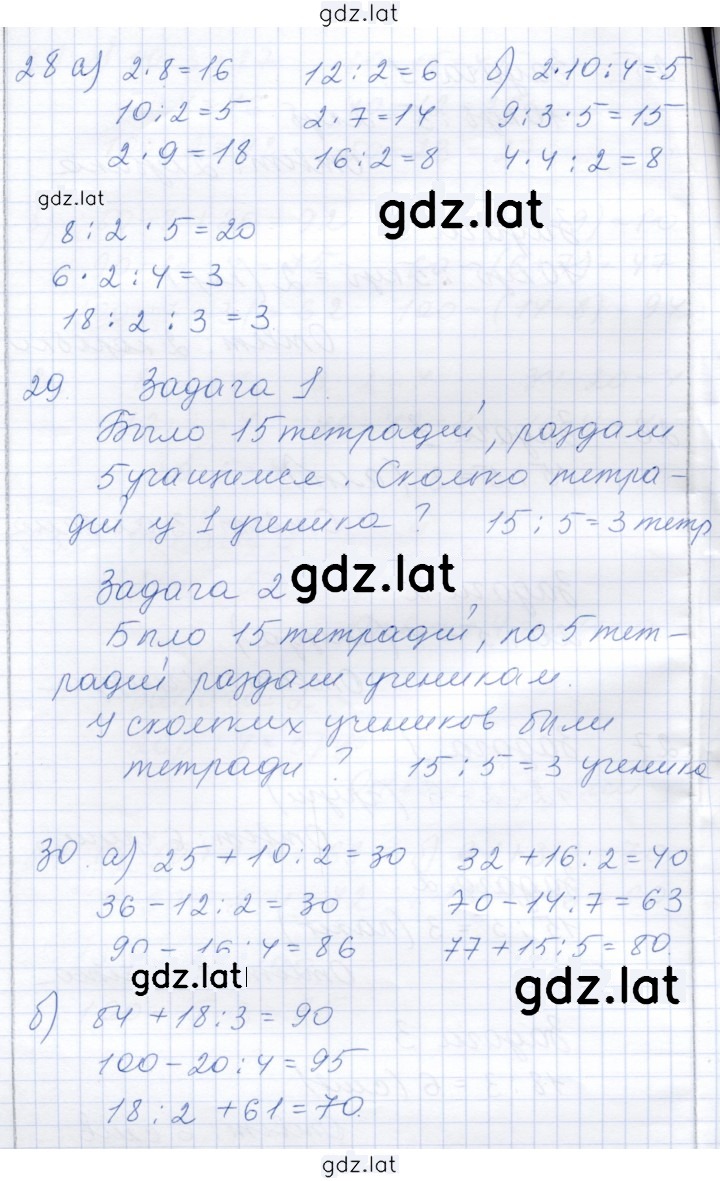 gdz.lat
28 а) 2·8=16 12:2=6 б) 2·10:4=5
10:2=5 2·7=14 9:3·5=15
2·9=18 16:2=8 4·4:2=8
gdz.lat
gdz.lat
8:2·5=20
6·2:4=3
18:2:3=3.
29. Задача 1.
Было 15 тетрадей, раздали
5 учащимся. Сколько тетра-
дей у 1 ученика? 15:5=3 тетр
Задача 2
gdz.lat
Было 15 тетрадей, по 5 тет-
радей раздали ученикам.
У скольких учеников были
тетради? 15:5=3 ученика
30. а) 25+10:2=30 32+16:2=40
36-12:2=30 70-14:7=63
90-16:4=86 77+15:5=80.
gdz.lat
gdz.lat
б) 84+18:3=90
100-20:4=95
18:2+61=70.
gdz.lat